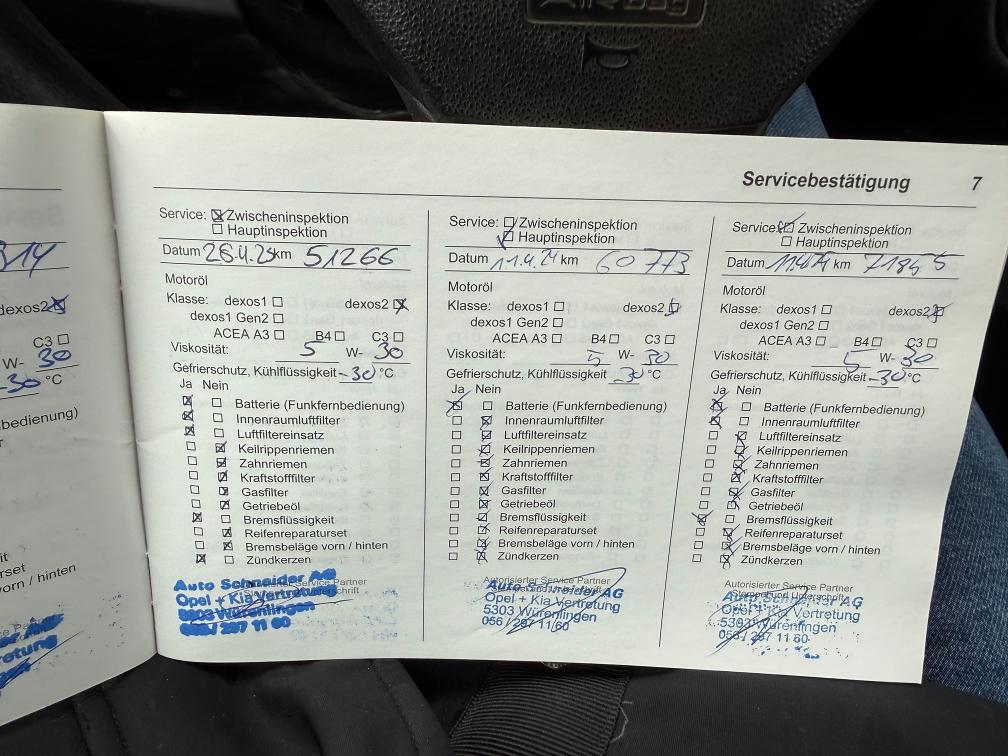 AIRBAG
Servicebestätigung 7
814
dexos2
C3
W- 30
-30 °C
dienung)
vorn / hinten
Service: Zwischeninspektion
Hauptinspektion
Datum km 51266
Motoröl
Klasse: dexos1 dexos2
dexos1 Gen2
ACEA A3 B4 C3
Viskosität: 5 W- 30
Gefrierschutz, Kühlflüssigkeit -30 °C
Ja Nein
Batterie (Funkfernbedienung)
Innenraumluftfilter
Luftfiltereinsatz
Keilrippenriemen
Zahnriemen
Kraftstofffilter
Gasfilter
Getriebeöl
Bremsflüssigkeit
Reifenreparaturset
Bremsbeläge vorn / hinten
Zündkerzen
Auto Schneider AG
Opel + Kia Vertretung
5303 Würenlingen
056 / 297 11 60
Service: Zwischeninspektion
Hauptinspektion
Datum 11.4.24 km 60 773
Motoröl
Klasse: dexos1 dexos2
dexos1 Gen2
ACEA A3 B4 C3
Viskosität: 5 W- 30
Gefrierschutz, Kühlflüssigkeit -30 °C
Ja Nein
Batterie (Funkfernbedienung)
Innenraumluftfilter
Luftfiltereinsatz
Keilrippenriemen
Zahnriemen
Kraftstofffilter
Gasfilter
Getriebeöl
Bremsflüssigkeit
Reifenreparaturset
Bremsbeläge vorn / hinten
Zündkerzen
Autorisierter Service Partner
Auto Schneider AG
Opel + Kia Vertretung
5303 Würenlingen
056 / 297 11 60
Service: Zwischeninspektion
Hauptinspektion
Datum km 71855
Motoröl
Klasse: dexos1 dexos2
dexos1 Gen2
ACEA A3 B4 C3
Viskosität: 5 W- 30
Gefrierschutz, Kühlflüssigkeit -30 °C
Ja Nein
Batterie (Funkfernbedienung)
Innenraumluftfilter
Luftfiltereinsatz
Keilrippenriemen
Zahnriemen
Kraftstofffilter
Gasfilter
Getriebeöl
Bremsflüssigkeit
Reifenreparaturset
Bremsbeläge vorn / hinten
Zündkerzen
Autorisierter Service Partner
Stempel und Unterschrift
Auto Schneider AG
Opel + Kia Vertretung
5303 Würenlingen
056 / 297 11 60